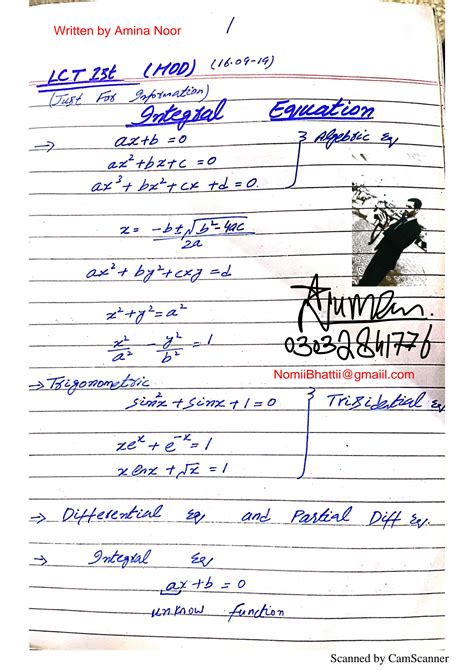 Written by Amina Noor
1
LCT 1st (MOD) (16-09-19)
(Just For Information)
Integral Equation
→ ax+b = 0
ax²+bx+c = 0
ax³+bx²+cx+d = 0.
} Algebric Eq
x = -b±√b²-4ac / 2a
ax²+by²+cxy = d
x²+y² = a²
x²/a² - y²/b² = 1
03032841776
NomiiBhattii@gmaiil.com
→ Trigonometric
sin²x + sinx + 1 = 0
xeˣ + e⁻ˣ = 1
x lnx + √x = 1
→ Differential Eq and Partial Diff Eq.
→ Integral Eq
ax+b = 0
unknow function
Scanned by CamScanner